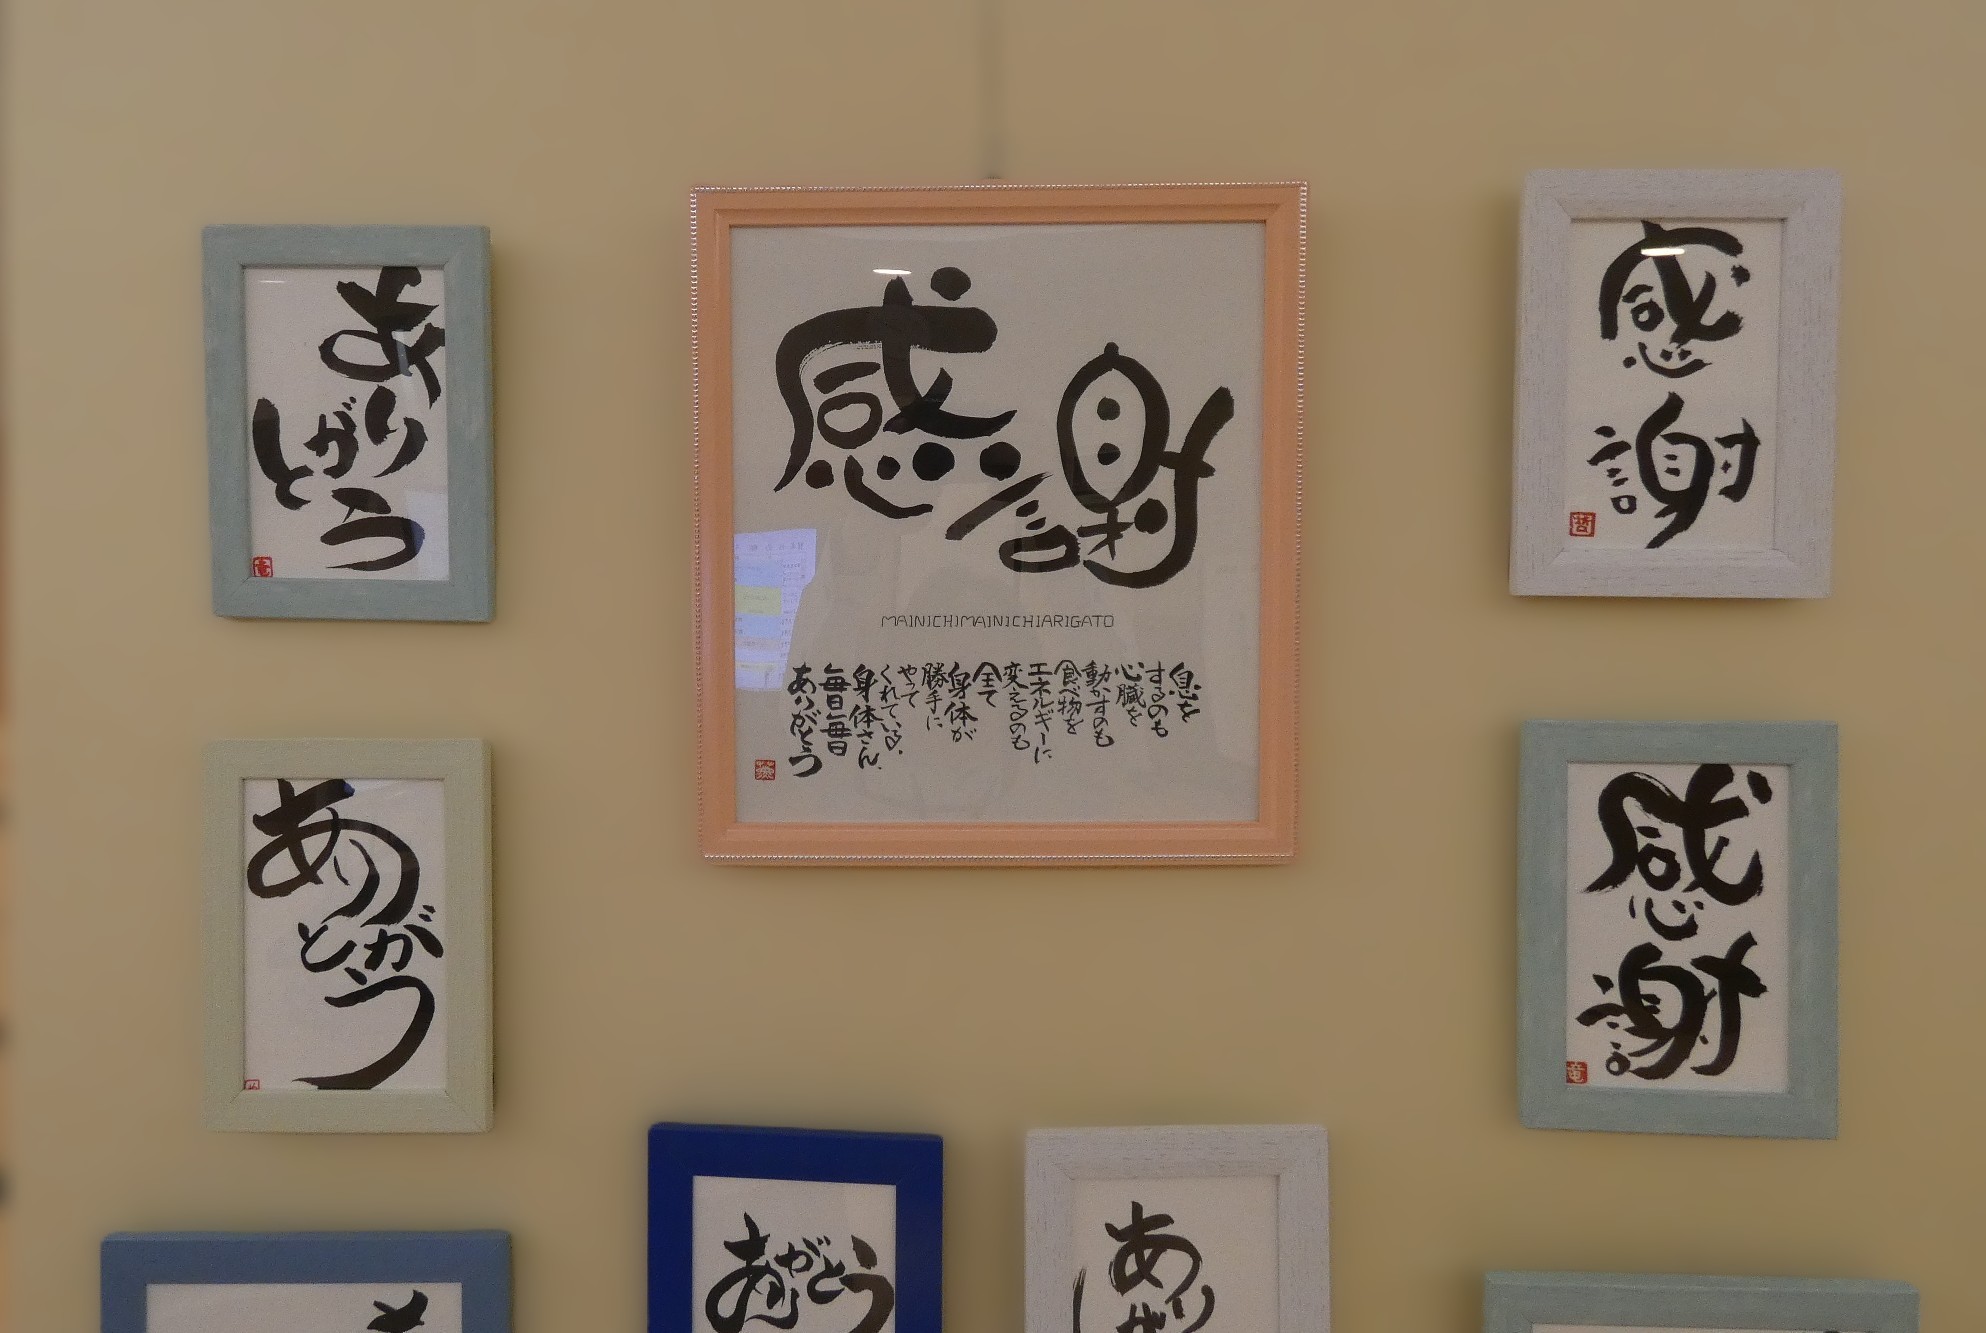 ありがとう
感謝
MAINICHIMAINICHIARIGATO
息を
するのも
心臓を
動かすのも
食べ物を
エネルギーに
変えるのも
全て
身体が
勝手に
やって
くれている.
身体さん.
毎日毎日
ありがとう
感謝
ありがとう
感謝
ありがとう
ありが